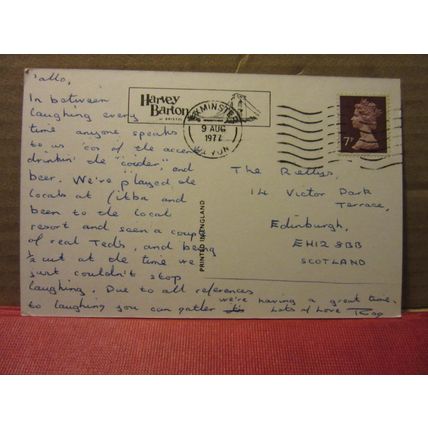 'allo,
In between
laughing every
time anyone speaks
to us 'cos of the accent
drinkin' the "coider" and
beer. We've played the
locals at fitba and
been to the local
resort and seen a coup
of real Teds, and being
½ cut at the time we
just couldn't stop
laughing. Due to all references
to laughing you can gather
we're having a great time.
Lots of Love
Harvey
Barton
of BRISTOL
9 AUG
1977
AVON
7P
PRINTED IN ENGLAND
The
14 Victor Park
Terrace,
Edinburgh,
EH12 8BB
SCOTLAND